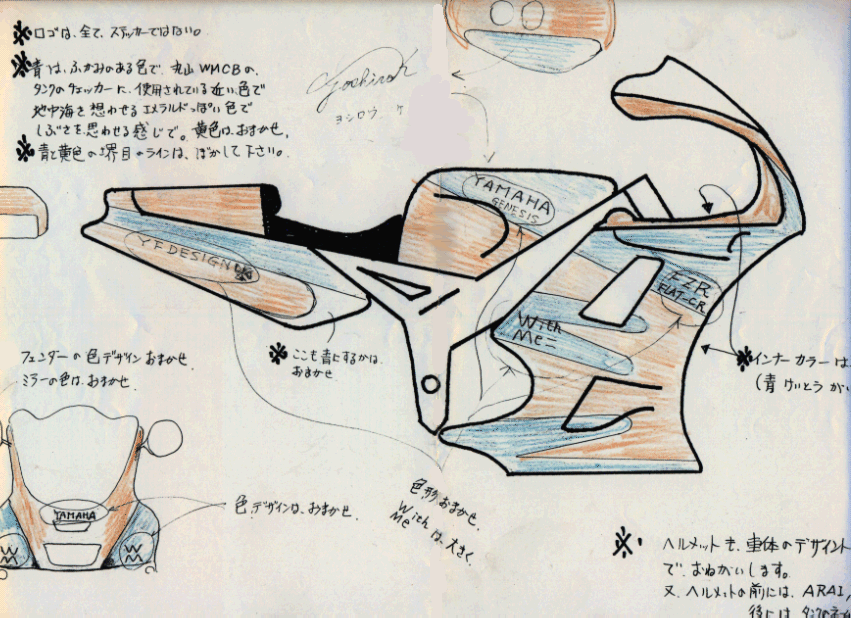 ※ロゴは、全て、ステッカーではない。
※青は、ふかみのある色で、丸山WMCBの、
タンクのチェッカーに、使用されている近い色で
地中海を想わせるエメラルドっぽい色で
しぶさを思わせる感じで。黄色は、おまかせ。
※青と黄色の境目のラインは、ぼかして下さい。
ヨシロウ
YAMAHA
GENESIS
YF DESIGN
FZR
FLAT-CR
With
Me
※ここも青にするかは、
おまかせ
※インナーカラーは
(青
フェンダーの色デザインおまかせ。
ミラーの色は、おまかせ。
YAMAHA
WM
WM
色、デザインは、おまかせ。
色形おまかせ。
With
Me は、大きく。
※ ヘルメットも、車体のデザイン
で、おねがいします。
又、ヘルメットの前には、ARAI,
後には、